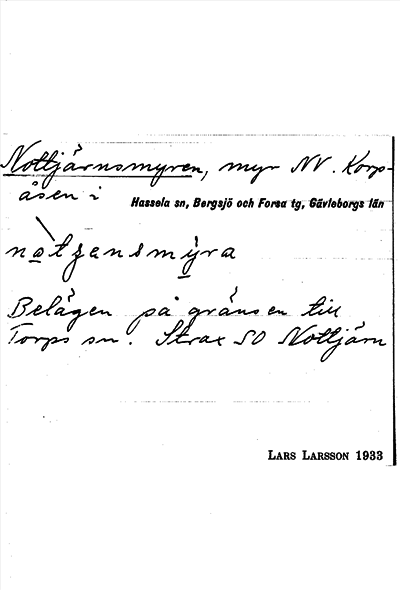 Nottjärnsmyren, myr NV. Korp-
åsen i
Hassela sn, Bergsjö och Forsa tg, Gävleborgs län
nɑ̀tʒensmy̲ra
Belägen på gränsen till
Torps sn. Strax SO Nottjärn
LARS LARSSON 1933